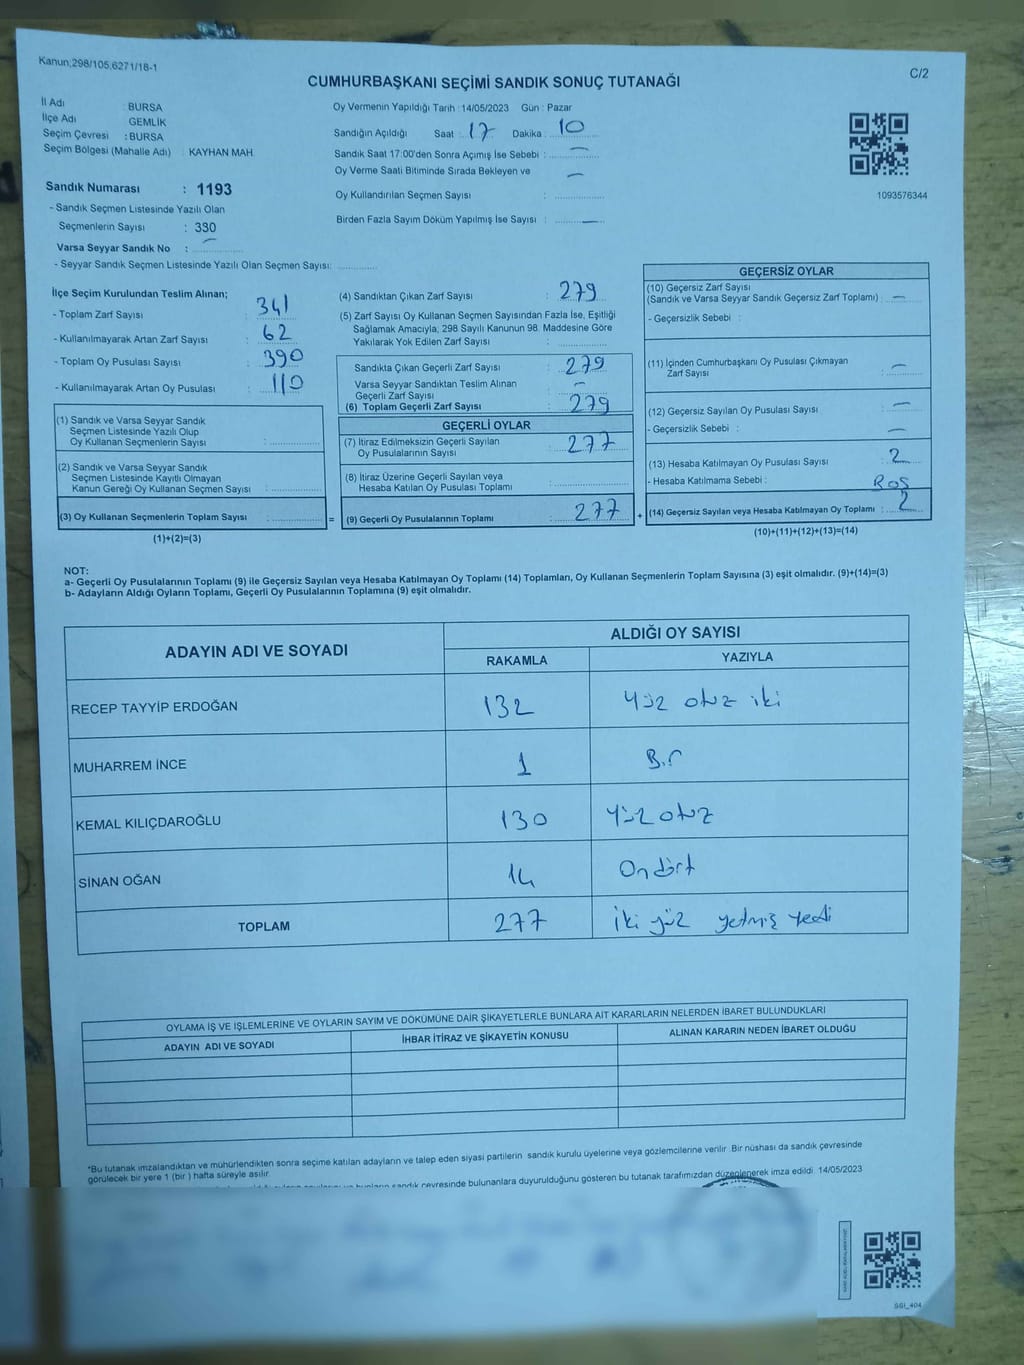 Kanun;298/105,6271/18-1
C/2
CUMHURBAŞKANI SEÇİMİ SANDIK SONUÇ TUTANAĞI
İl Adı : BURSA
İlçe Adı GEMLİK
Seçim Çevresi : BURSA
Seçim Bölgesi (Mahalle Adı) : KAYHAN MAH.
Sandık Numarası : 1193
- Sandık Seçmen Listesinde Yazılı Olan
Seçmenlerin Sayısı : 330
Varsa Seyyar Sandık No : —
- Seyyar Sandık Seçmen Listesinde Yazılı Olan Seçmen Sayısı:
Oy Vermenin Yapıldığı Tarih : 14/05/2023 Gün : Pazar
Sandığın Açıldığı Saat : 17 Dakika : 10
Sandık Saat 17:00'den Sonra Açımış İse Sebebi : —
Oy Verme Saati Bitiminde Sırada Bekleyen ve —
Oy Kullandırılan Seçmen Sayısı :
Birden Fazla Sayım Döküm Yapılmış İse Sayısı : —
1093576344
İlçe Seçim Kurulundan Teslim Alınan;
- Toplam Zarf Sayısı : 341
- Kullanılmayarak Artan Zarf Sayısı : 62
- Toplam Oy Pusulası Sayısı : 390
- Kullanılmayarak Artan Oy Pusulası : 110
(1) Sandık ve Varsa Seyyar Sandık
Seçmen Listesinde Yazılı Olup
Oy Kullanan Seçmenlerin Sayısı :
(2) Sandık ve Varsa Seyyar Sandık
Seçmen Listesinde Kayıtlı Olmayan
Kanun Gereği Oy Kullanan Seçmen Sayısı :
(3) Oy Kullanan Seçmenlerin Toplam Sayısı : =
(1)+(2)=(3)
(4) Sandıktan Çıkan Zarf Sayısı : 279
(5) Zarf Sayısı Oy Kullanan Seçmen Sayısından Fazla İse, Eşitliği
Sağlamak Amacıyla, 298 Sayılı Kanunun 98. Maddesine Göre
Yakılarak Yok Edilen Zarf Sayısı :
Sandıkta Çıkan Geçerli Zarf Sayısı : 279
Varsa Seyyar Sandıktan Teslim Alınan
Geçerli Zarf Sayısı : —
(6) Toplam Geçerli Zarf Sayısı : 279
GEÇERLİ OYLAR
(7) İtiraz Edilmeksizin Geçerli Sayılan
Oy Pusulalarının Sayısı : 277
(8) İtiraz Üzerine Geçerli Sayılan veya
Hesaba Katılan Oy Pusulası Toplamı :
(9) Geçerli Oy Pusulalarının Toplamı : 277 +
GEÇERSİZ OYLAR
(10) Geçersiz Zarf Sayısı
(Sandık ve Varsa Seyyar Sandık Geçersiz Zarf Toplamı) : —
- Geçersizlik Sebebi :
(11) İçinden Cumhurbaşkanı Oy Pusulası Çıkmayan
Zarf Sayısı : —
(12) Geçersiz Sayılan Oy Pusulası Sayısı : —
- Geçersizlik Sebebi : —
(13) Hesaba Katılmayan Oy Pusulası Sayısı : 2
- Hesaba Katılmama Sebebi : Boş
(14) Geçersiz Sayılan veya Hesaba Katılmayan Oy Toplamı : 2
(10)+(11)+(12)+(13)=(14)
NOT:
a- Geçerli Oy Pusulalarının Toplamı (9) ile Geçersiz Sayılan veya Hesaba Katılmayan Oy Toplamı (14) Toplamları, Oy Kullanan Seçmenlerin Toplam Sayısına (3) eşit olmalıdır. (9)+(14)=(3)
b- Adayların Aldığı Oyların Toplamı, Geçerli Oy Pusulalarının Toplamına (9) eşit olmalıdır.
ADAYIN ADI VE SOYADI ALDIĞI OY SAYISI
RAKAMLA YAZIYLA
RECEP TAYYİP ERDOĞAN 132 Yüz otuz iki
MUHARREM İNCE 1 Bir
KEMAL KILIÇDAROĞLU 130 Yüz otuz
SİNAN OĞAN 14 On dört
TOPLAM 277 İki yüz yetmiş yedi
OYLAMA İŞ VE İŞLEMLERİNE VE OYLARIN SAYIM VE DÖKÜMÜNE DAİR ŞİKAYETLERLE BUNLARA AİT KARARLARIN NELERDEN İBARET BULUNDUKLARI
ADAYIN ADI VE SOYADI İHBAR İTİRAZ VE ŞİKAYETİN KONUSU ALINAN KARARIN NEDEN İBARET OLDUĞU
*Bu tutanak imzalandıktan ve mühürlendikten sonra seçime katılan adayların ve talep eden siyasi partilerin sandık kurulu üyelerine veya gözlemcilerine verilir. Bir nüshası da sandık çevresinde
görülecek bir yere 1 (bir ) hafta süreyle asılır.
sandık çevresinde bulunanlara duyurulduğunu gösteren bu tutanak tarafımızdan düzenlenerek imza edildi. 14/05/2023
SGI_404